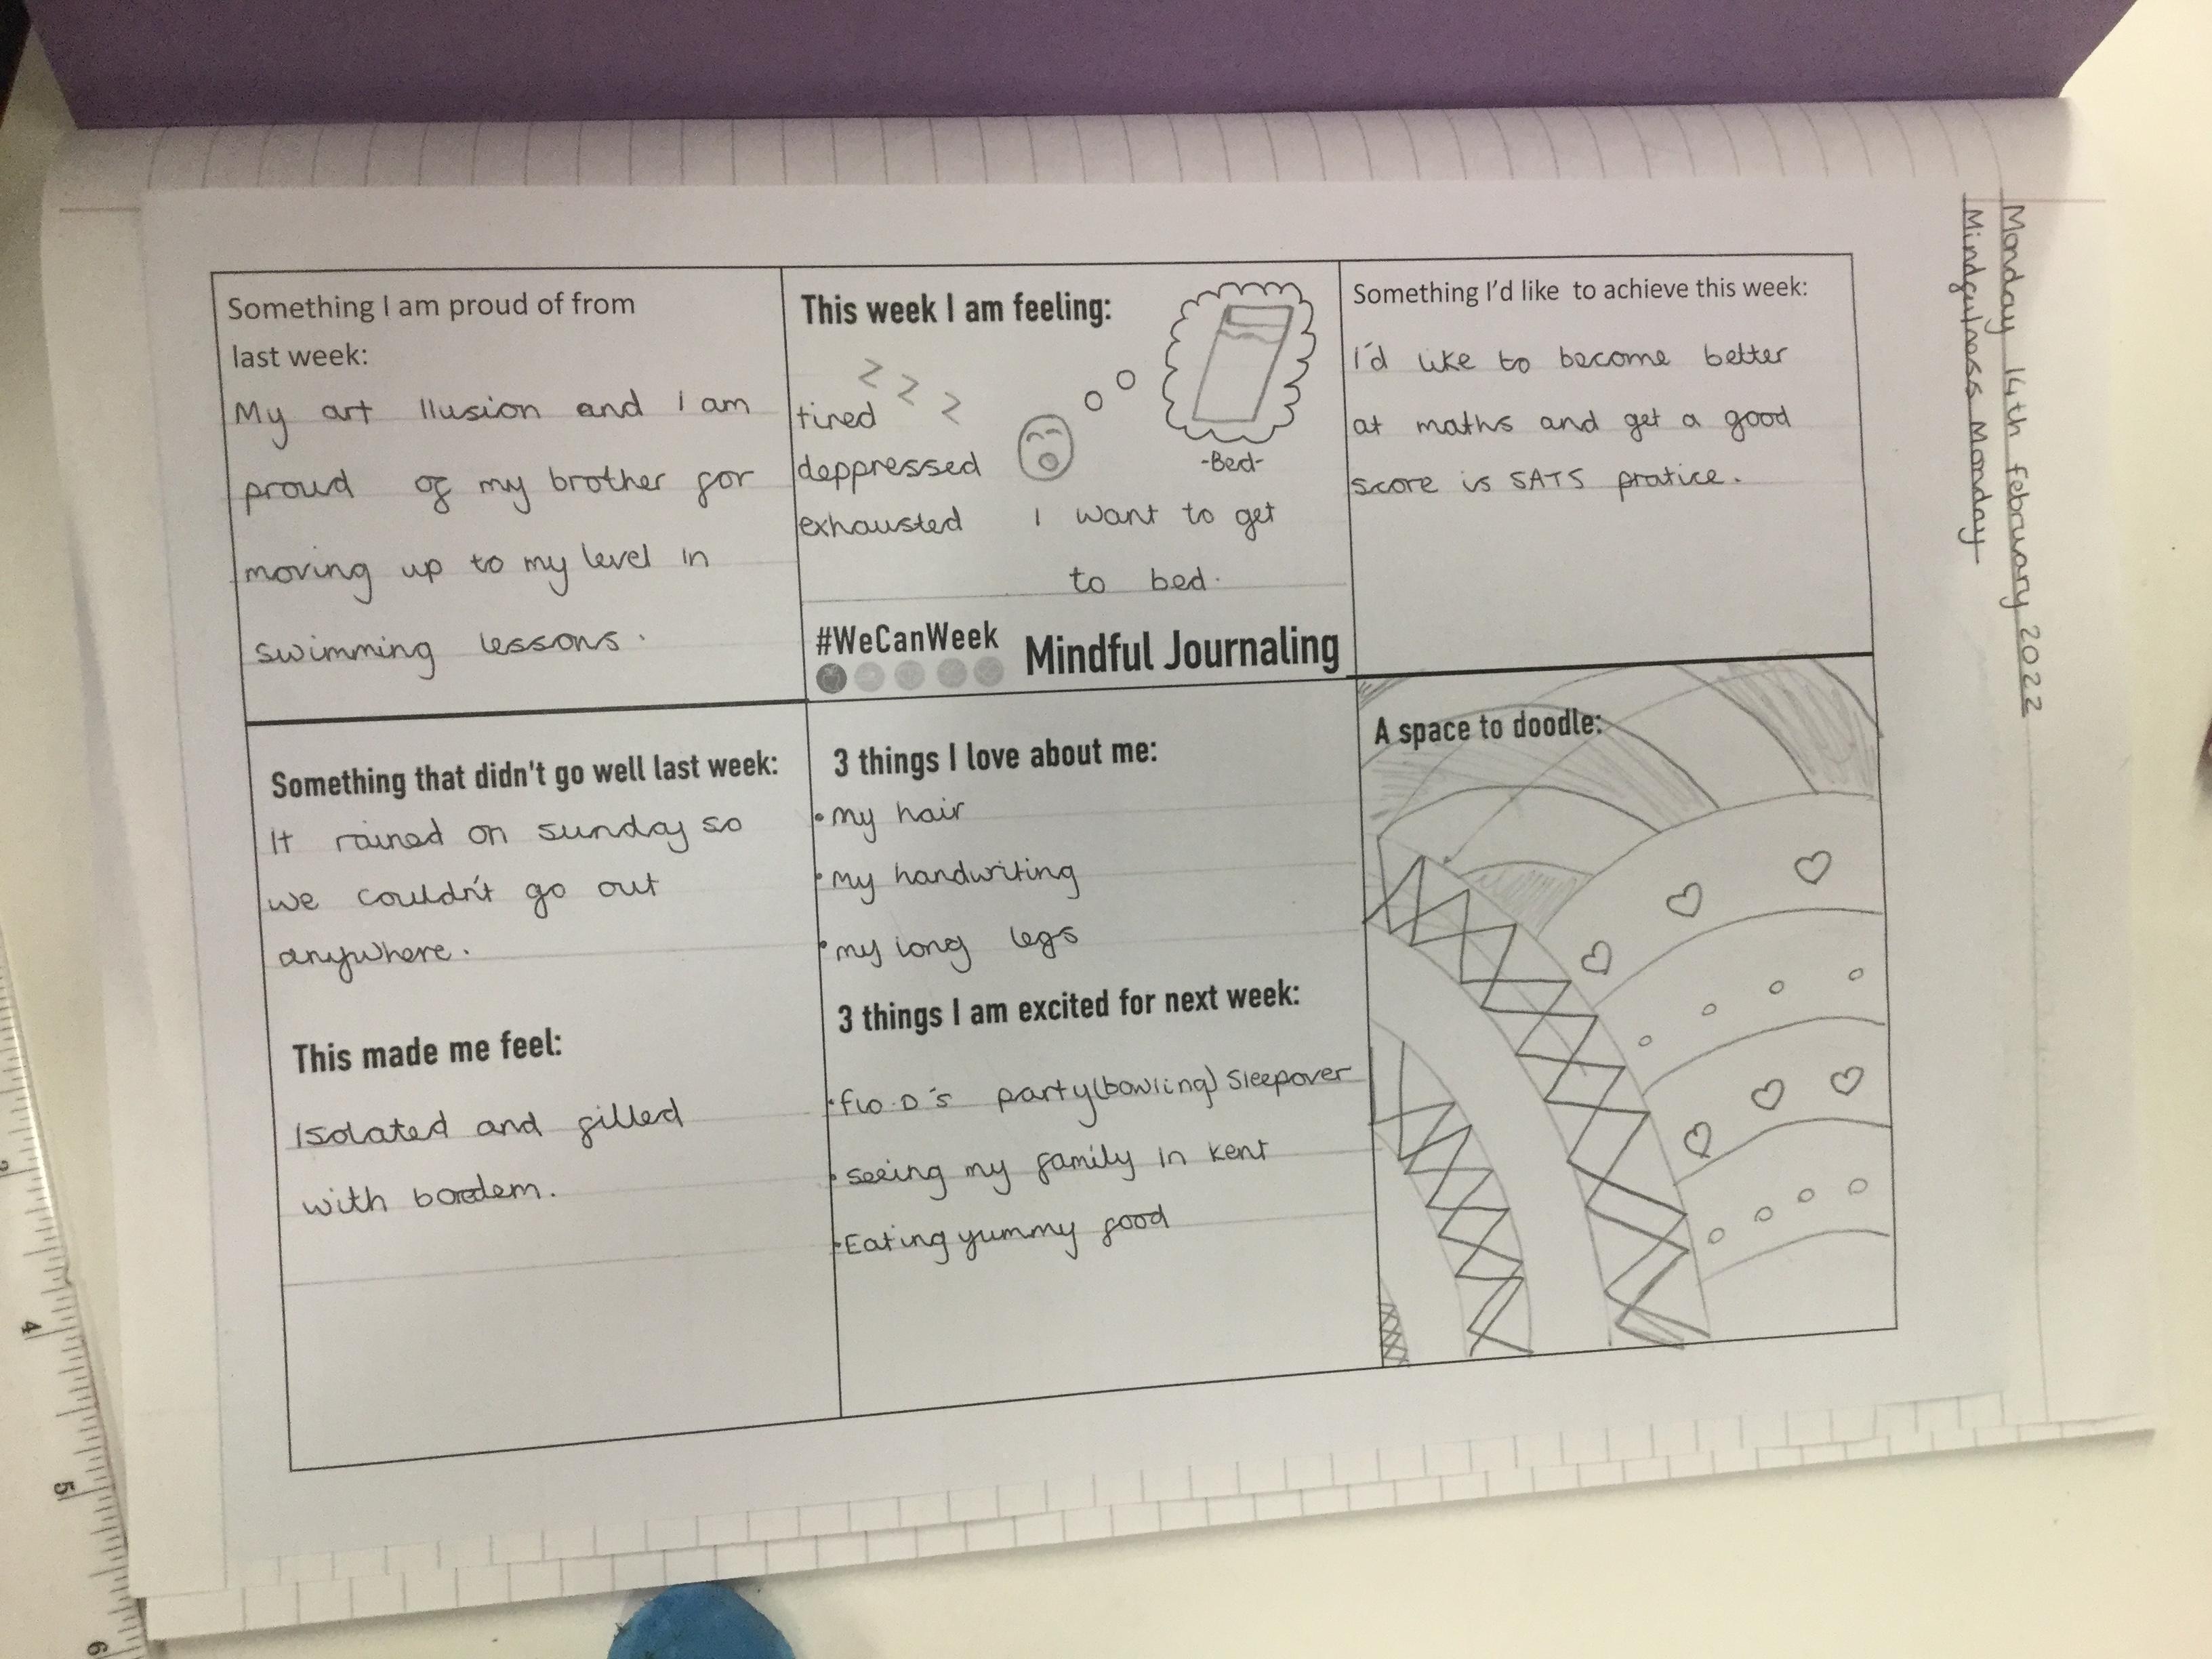 Monday 14th february 2022
Mindfulness Monday
Something I am proud of from
last week:
My art llusion and I am
proud of my brother for
moving up to my level in
swimming lessons.
This week I am feeling:
z z z
tired
deppressed
exhausted
-Bed-
I want to get
to bed.
#WeCanWeek
Mindful Journaling
Something I'd like to achieve this week:
I'd like to become better
at maths and get a good
score is SATS pratice.
Something that didn't go well last week:
It rained on sunday so
we couldn't go out
anywhere.
This made me feel:
Isolated and filled
with boredem.
3 things I love about me:
• my hair
• my handwriting
• my long legs
3 things I am excited for next week:
• flo.D's party(bowling) sleepover
• seeing my family in kent
• Eating yummy food
A space to doodle:
2
4
5
6